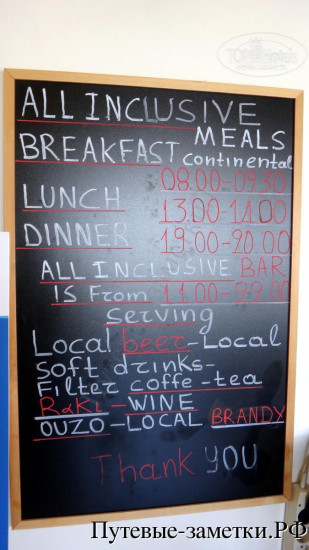 ALL INCLUSIVE
MEALS
BREAKFAST continental
08.00-09.30
LUNCH 13.00-14.00
DINNER 19.00-20.00
ALL INCLUSIVE BAR
IS From 11.00-22.00
serving
Local beer-Local
Soft drinks-
Filter coffe-tea
Raki-WINE
OUZO-LOCAL BRANDY
Thank YOU
Путевые-заметки.РФ